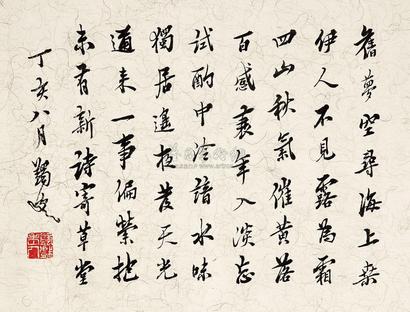 舊夢尋海上桑
伊人不見露為霜
四山秋氣催黃落
百感衰年入淡忘
試酌中泠諳水味
獨居遙夜發天光
道来一事偏縈抱
未有新詩寄草堂
丁亥八月